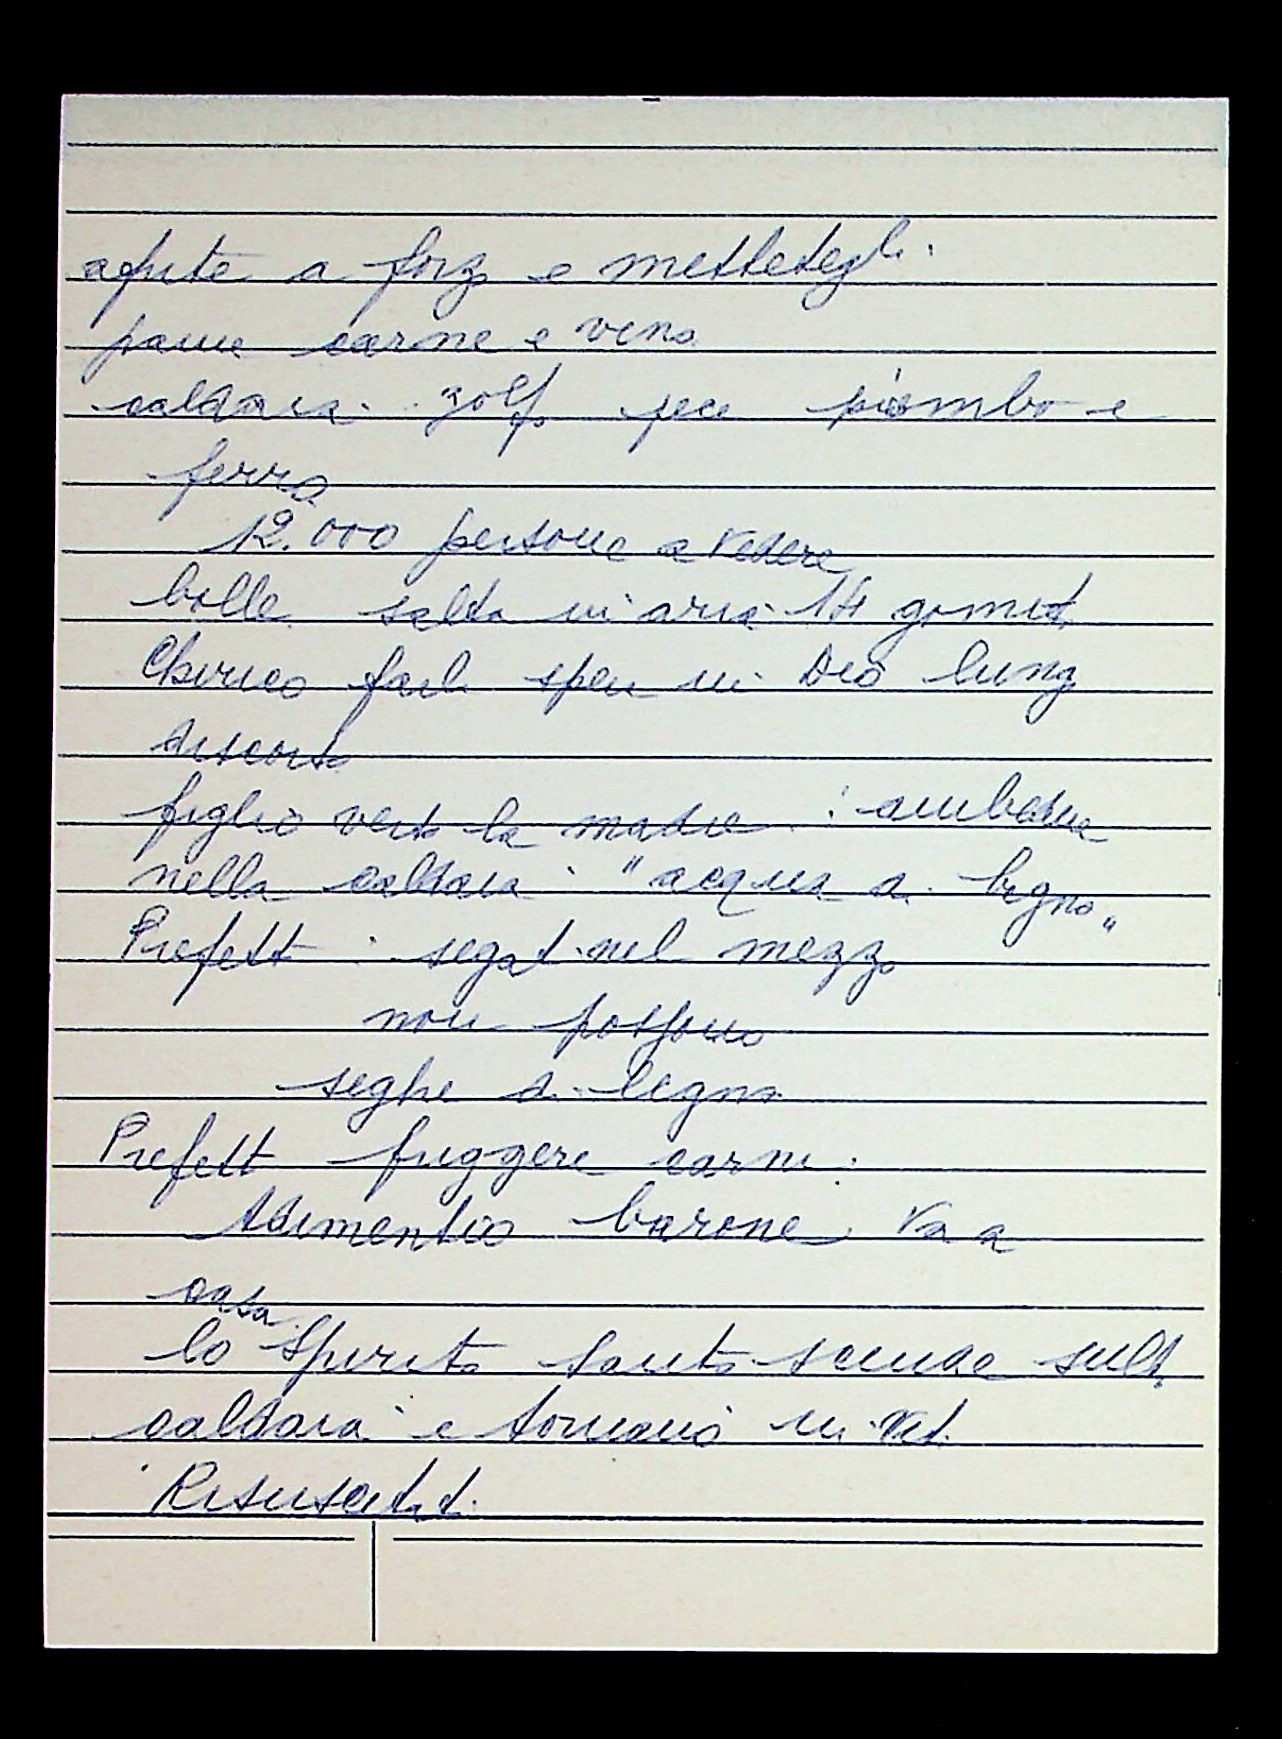 aprite a forz e mettetegli
pane carne e vino
caldaia zolfo pece piombo e
ferro
12.000 persone a vedere
bolle salta in aria 14 gomit.
Chirico farl. sper in Dio lung
discorso
figlio verso la madre : ambedue
nella caldaia : "acqua di bagno"
Prefett : segat nel mezzo
non possono
seghe di legno
Prefett friggere carni :
barone va a
casa
lo Spirito Santo scende sull.
caldaia e tornano in vit.
Risuscitat.